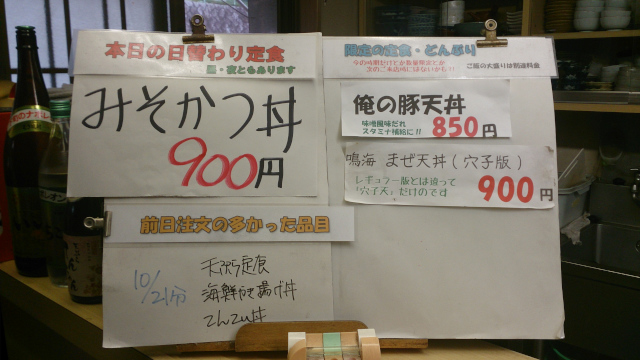 本日の日替わり定食
昼・夜ともあります
みそかつ丼
900円
前日注文の多かった品目
10/21分
天ぷら定食
海鮮かき揚げ丼
てんてい丼
限定の定食・どんぶり
今の時期だけとか数量限定とか
次のご来店時にはないかも?!
ご飯の大盛りは別途料金
俺の豚天丼
味噌風味だれ
スタミナ補給に!!
850円
鳴海 まぜ天丼(穴子版)
レギュラー版とは違って
「穴子天」だけのです
900円